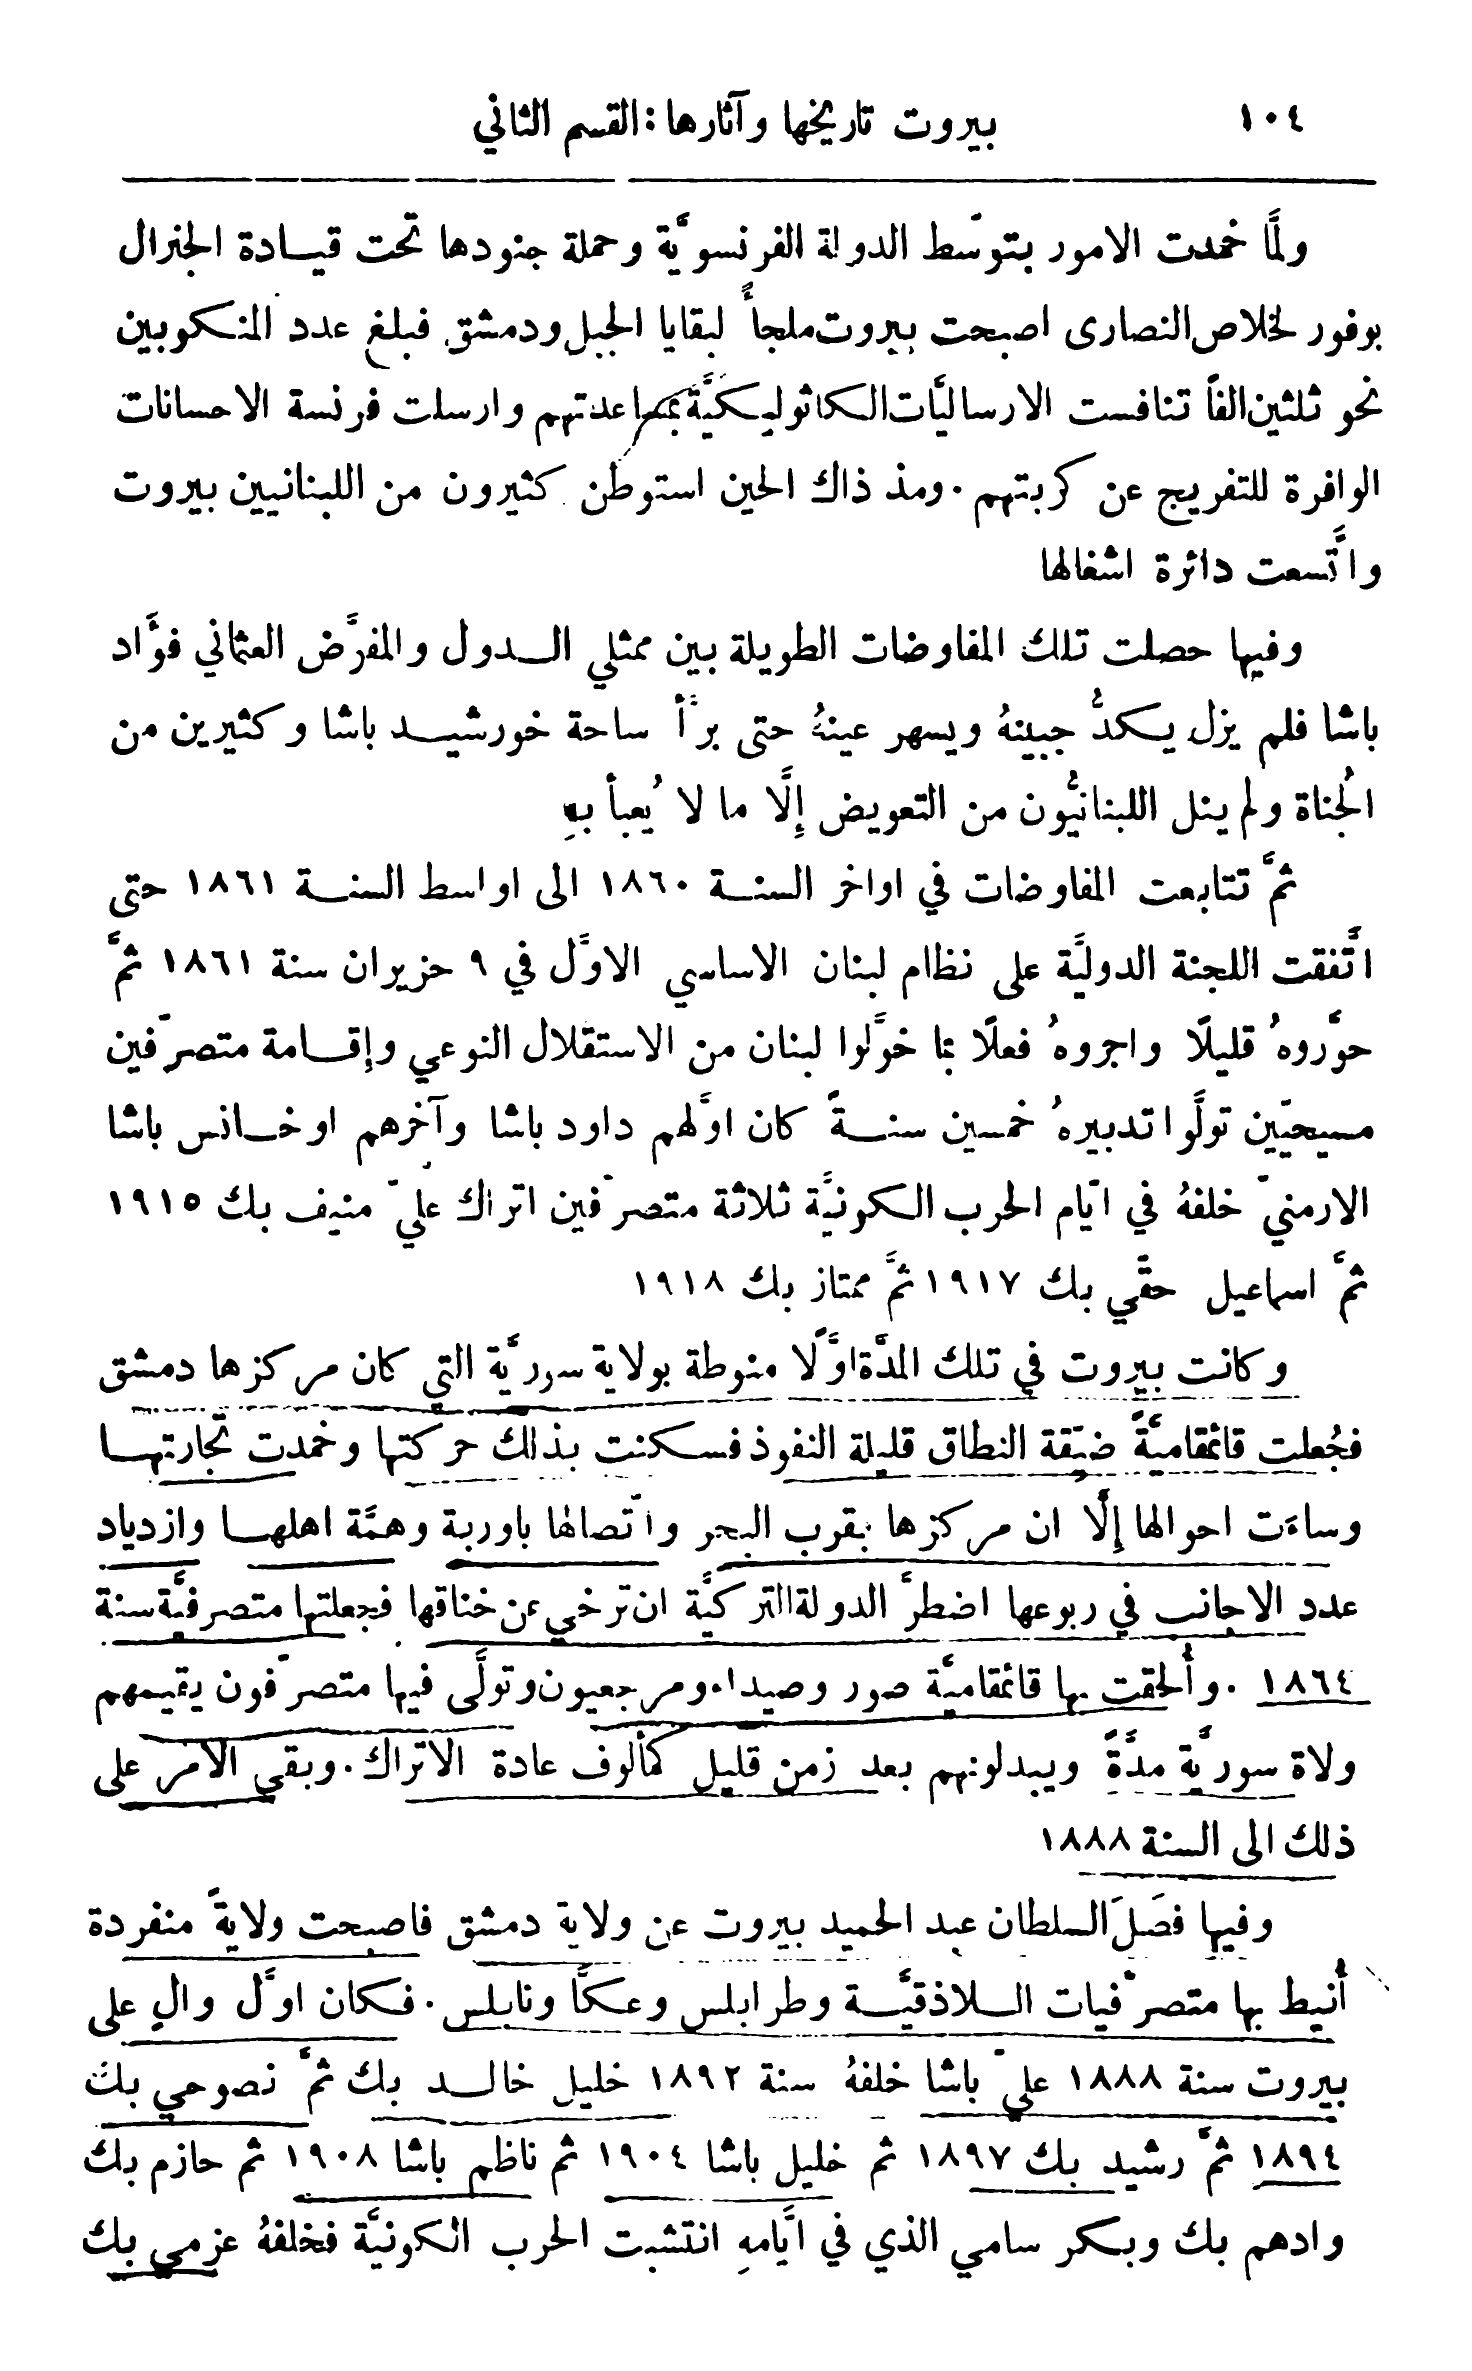 ١٠٤ بيروت تاريخها وآثارها: القسم الثاني
ولمَّا خمدت الامور بتوسّط الدولة الفرنسويَّة وحملة جنودها تحت قيادة الجنرال
بوفور لخلاص النصارى اصبحت بيروت ملجأً لبقايا الجبل ودمشق فبلغ عدد المنكوبين
نحو ثلثين الفاً تنافست الارساليَّات الكاثوليكيَّة بمساعدتهم وارسلت فرنسة الاحسانات
الوافرة للتفريج عن كربتهم. ومذ ذاك الحين استوطن كثيرون من اللبنانيين بيروت
واتَّسعت دائرة اشغالها
وفيها حصلت تلك المفاوضات الطويلة بين ممثلي الدول والمفوَّض العثماني فؤَاد
باشا فلم يزل يكدُّ جبينهُ ويسهر عينهُ حتى برأ ساحة خورشيد باشا وكثيرين من
الجُناة ولم ينل اللبنانيُّون من التعويض إلَّا ما لا يُعبأ بهِ
ثمَّ تتابعت المفاوضات في اواخر السنة ١٨٦٠ الى اواسط السنة ١٨٦١ حتى
اتَّفقت اللجنة الدوليَّة على نظام لبنان الاساسي الاوَّل في ٩ حزيران سنة ١٨٦١ ثمَّ
حوَّروهُ قليلًا واجروهُ فعلًا بما خوَّلوا لبنان من الاستقلال النوعي وإقامة متصرّفين
مسيحيّين تولَّوا تدبيرهُ خمسين سنةً كان اوَّلهم داود باشا وآخرهم اوخانس باشا
الارمنيّ خلفهُ في ايَّام الحرب الكونيَّة ثلاثة متصرّفين اتراك عليّ منيف بك ١٩١٥
ثمَّ اسماعيل حقّي بك ١٩١٧ ثمَّ ممتاز بك ١٩١٨
وكانت بيروت في تلك المدَّة اوَّلًا منوطة بولاية سوريَّة التي كان مركزها دمشق
فجُعلت قائمقاميَّةً ضيّقة النطاق قليلة النفوذ فسكنت بذلك حركتها وخمدت تجارتها
وساءَت احوالها إلَّا ان مركزها بقرب البحر واتّصالها باوربة وهمَّة اهلها وازدياد
عدد الاجانب في ربوعها اضطرَّ الدولة التركيَّة ان ترخي عن خناقها فجعلتها متصرفيَّة سنة
١٨٦٤. وأُلحقت بها قائمقاميَّة صور وصيداء ومرجعيون وتولَّى فيها متصرّفون يقيمهم
ولاة سوريَّة مدَّةً ويبدلونهم بعد زمن قليل كمألوف عادة الاتراك. وبقي الامر على
ذلك الى السنة ١٨٨٨
وفيها فصَلَ السلطان عبد الحميد بيروت عن ولاية دمشق فاصبحت ولايةً منفردة
أُنيط بها متصرّفيات اللاذقيَّة وطرابلس وعكَّا ونابلس. فكان اوَّل والٍ على
بيروت سنة ١٨٨٨ عليّ باشا خلفهُ سنة ١٨٩٢ خليل خالد بك ثمَّ نصوحي بك
١٨٩٤ ثمَّ رشيد بك ١٨٩٧ ثم خليل باشا ١٩٠٤ ثم ناظم باشا ١٩٠٨ ثم حازم بك
وادهم بك وبكر سامي الذي في ايَّامهِ انتشبت الحرب الكونيَّة فخلفهُ عزمي بك